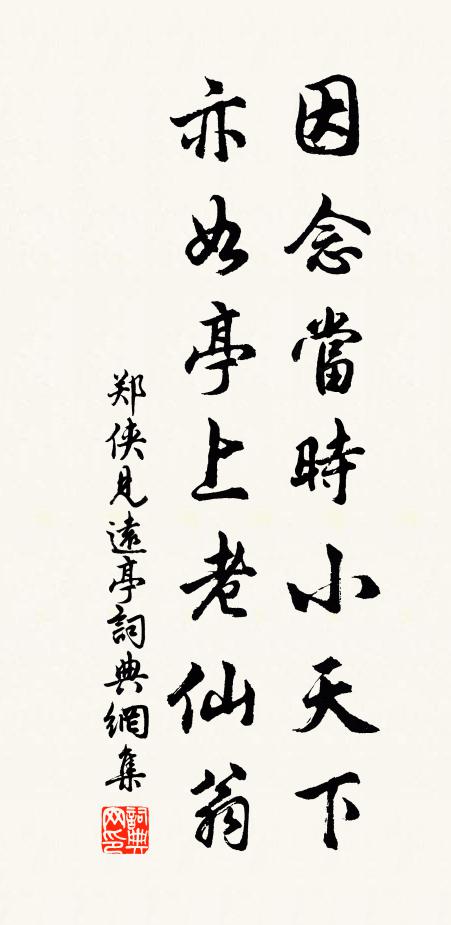 因念當時小天下
亦如亭上老仙翁
郑侠见遠亭詞典網集
詞典网印